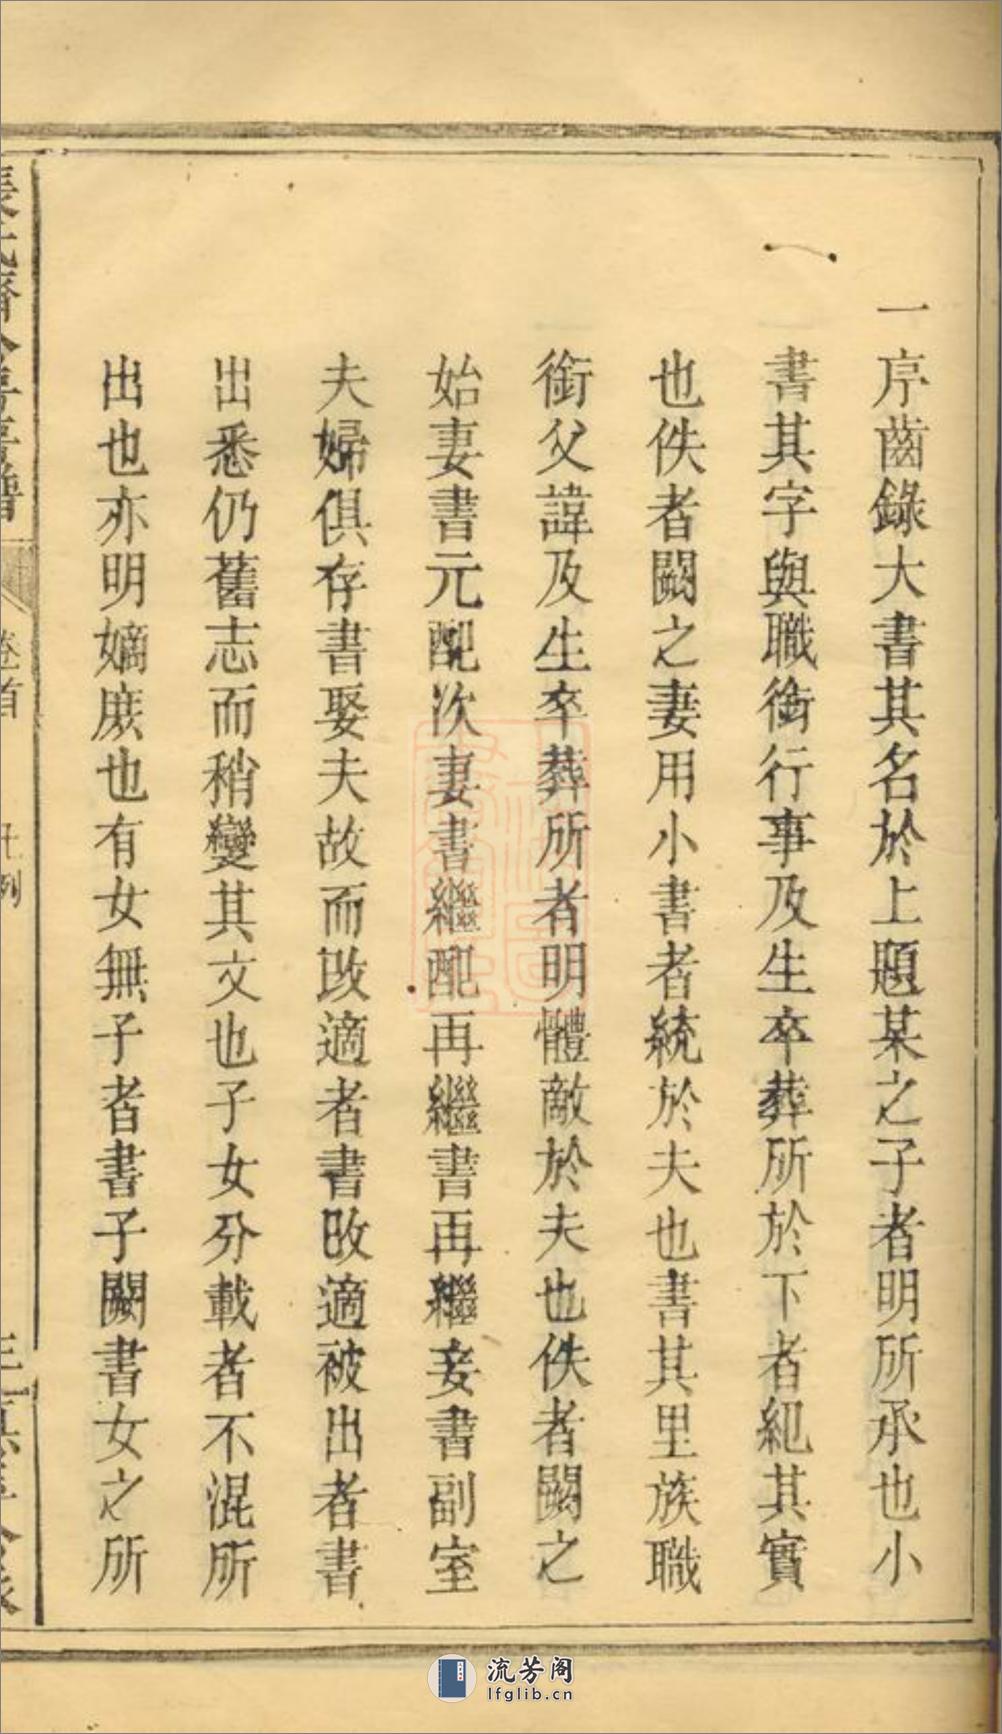 一序齒錄大書其名於上題某之子者明所承也小
書其字與職銜行事及生卒葬所於下者紀其實
也佚者闕之妻用小書者統於夫也書其里族職
銜父諱及生卒葬所者明體敵於夫也佚者闕之
始妻書元配次妻書繼配再繼書再繼妾書副室
夫婦俱存書娶夫故而改適者書改適被出者書
出悉仍舊志而稍變其文也子女分載者不混所
出也亦明嫡庶也有女無子者書子闕書女之所
卷首
凡例
流芳阁
lfglib.cn